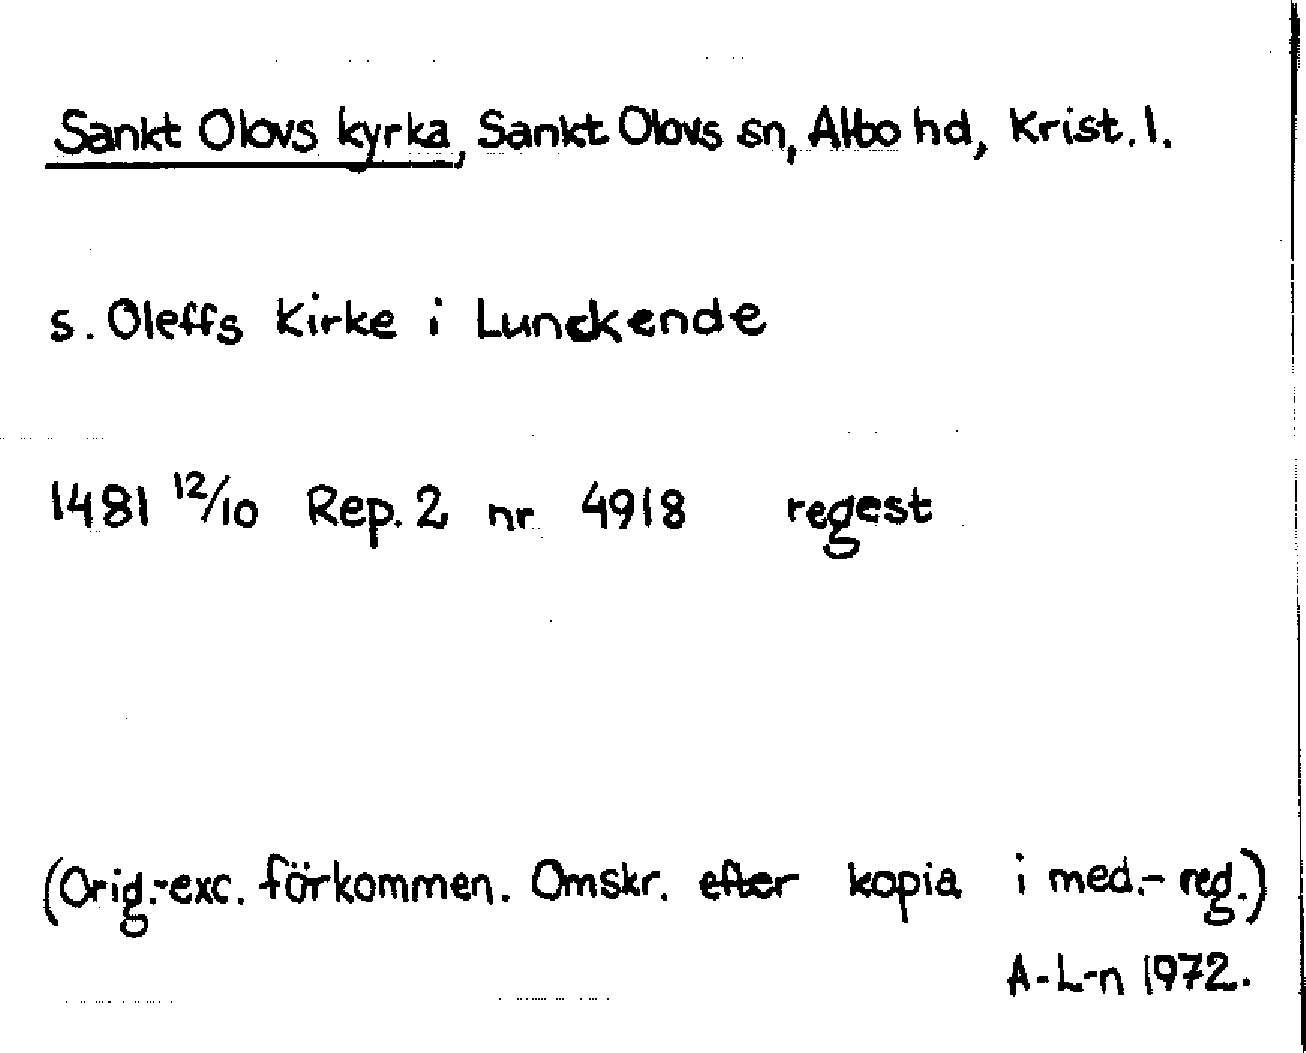 Sankt Olovs kyrka, Sankt Olovs sn, Albo hd, Krist. l.
s. Oleffs Kirke i Lunckende
1481 12/10 Rep. 2 nr 4918 regest
(Orig.-exc. förkommen. Omskr. efter kopia i med.-reg.)
A-L-n 1972.